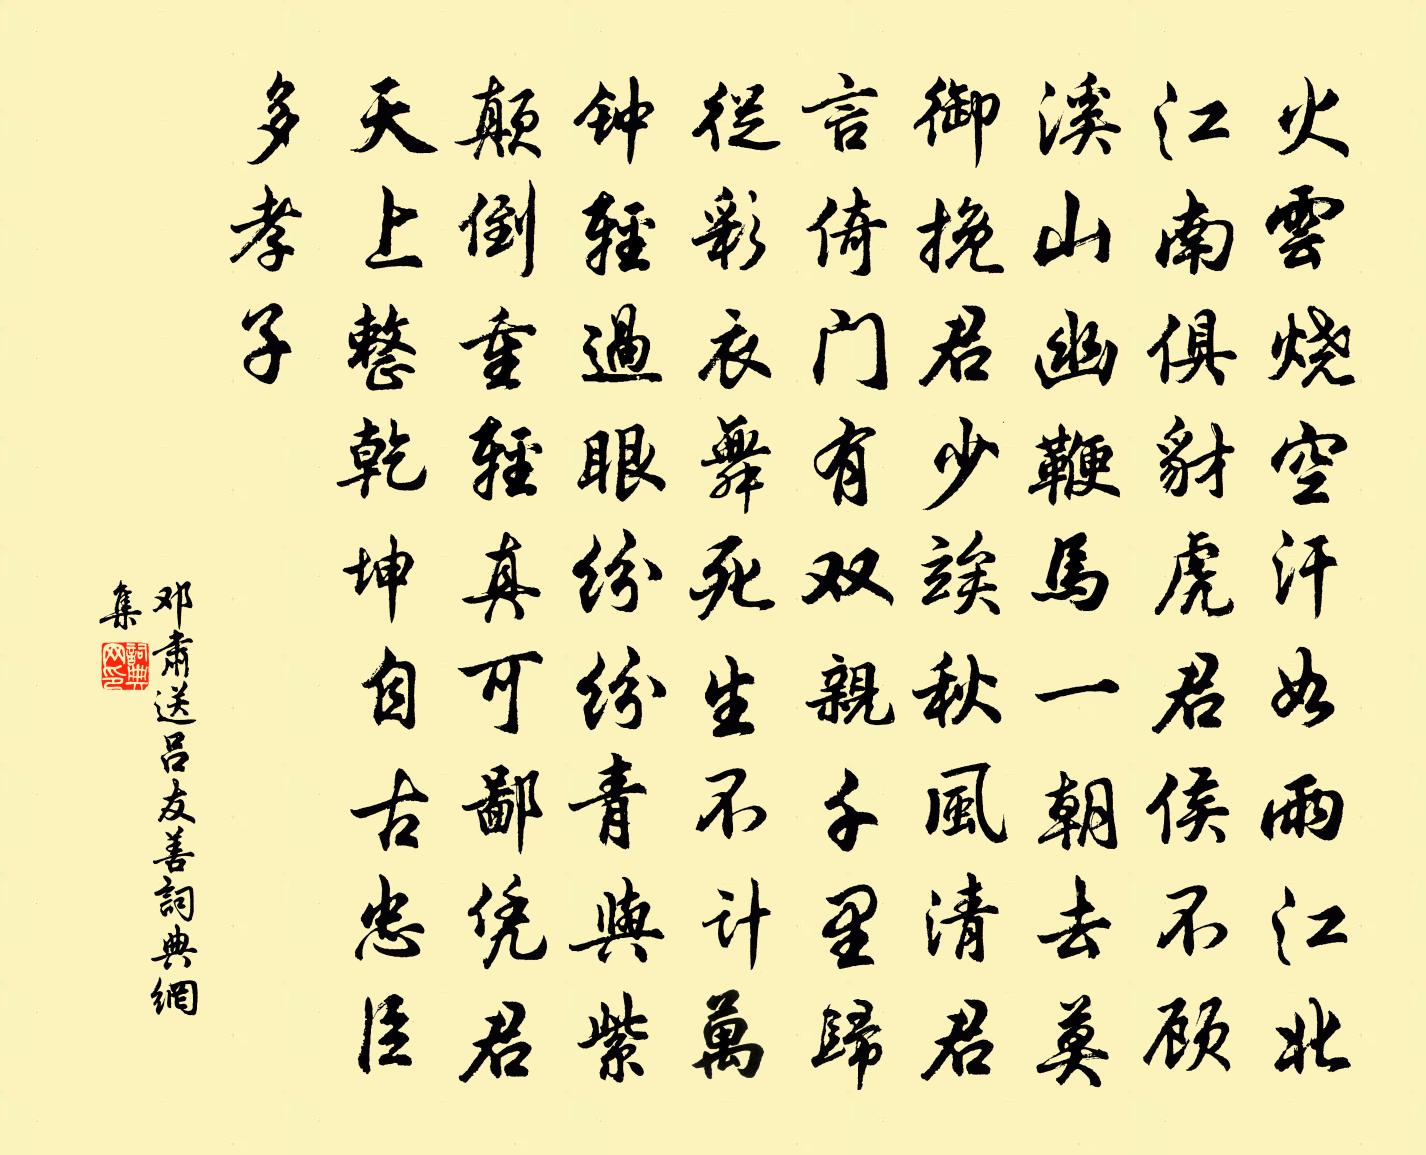 火雲燒空汗如雨江北
江南俱豺虎君侯不顾
溪山幽鞭馬一朝去莫
御挽君少竢秋風清君
言倚门有双親千里歸
從彩衣舞死生不计萬
钟輕過眼紛紛青與紫
颠倒重輕真可鄙凭君
天上整乾坤自古忠臣
多孝子
邓肃送吕友善詞典網
集
詞典网印